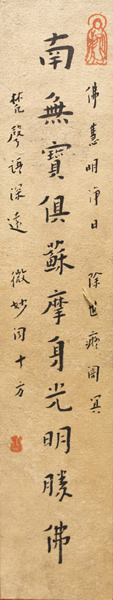 佛慧明淨日　除世癡闇冥
南無寶俱蘇摩身光明勝佛
梵聲語深遠　微妙聞十方